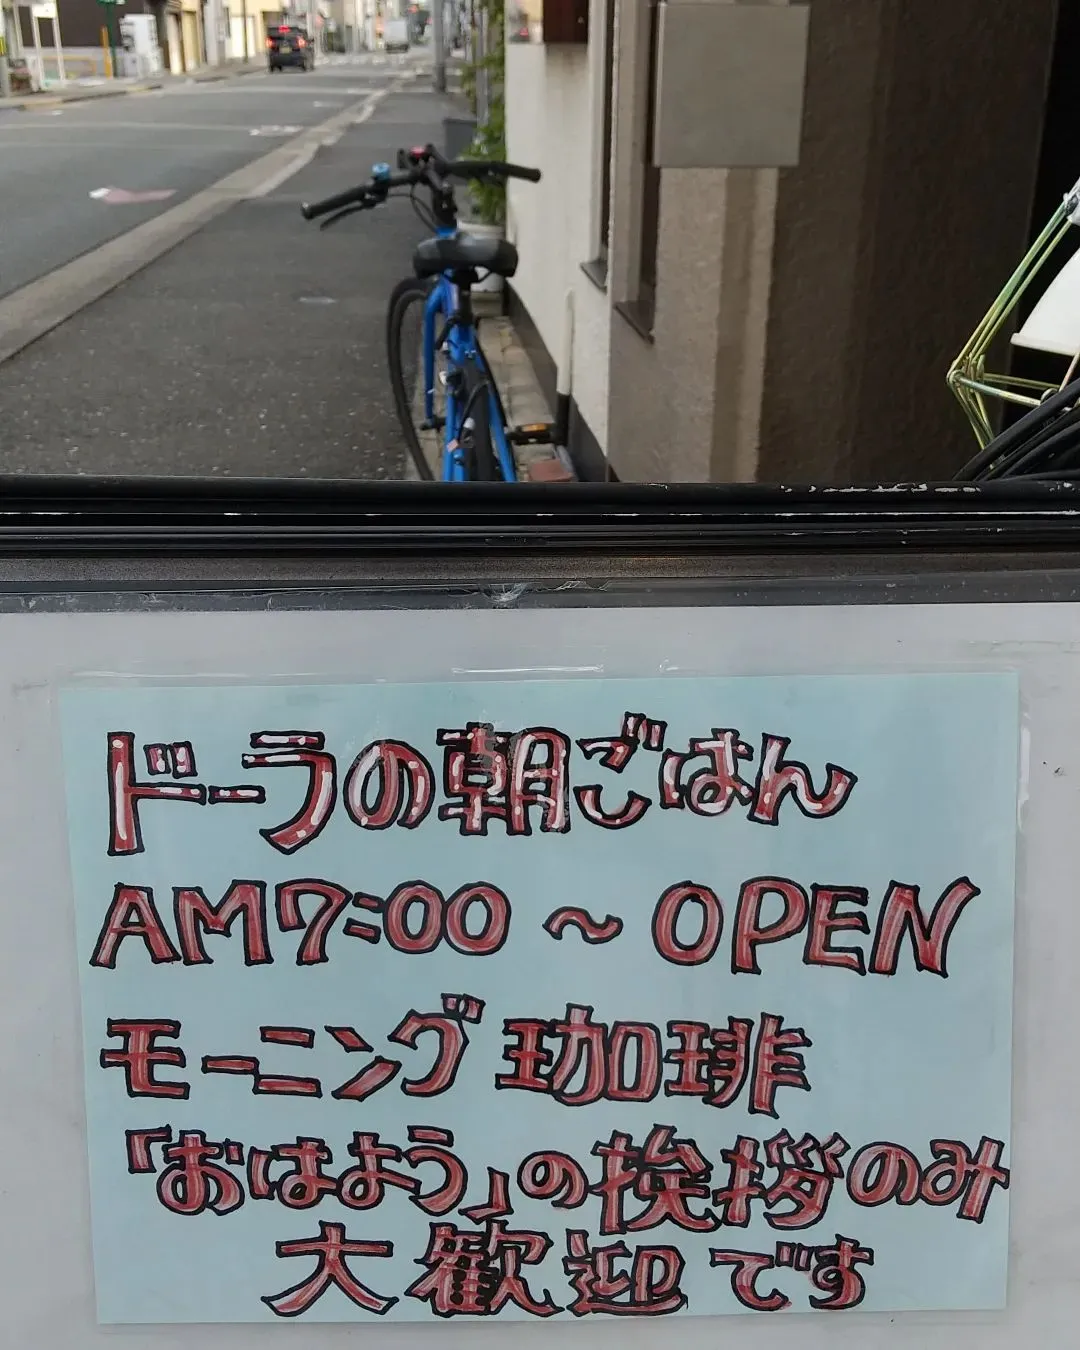 ドーラの朝ごはん
AM7:00 ~ OPEN
モーニング 珈琲
「おはよう」の挨拶のみ
大歓迎です